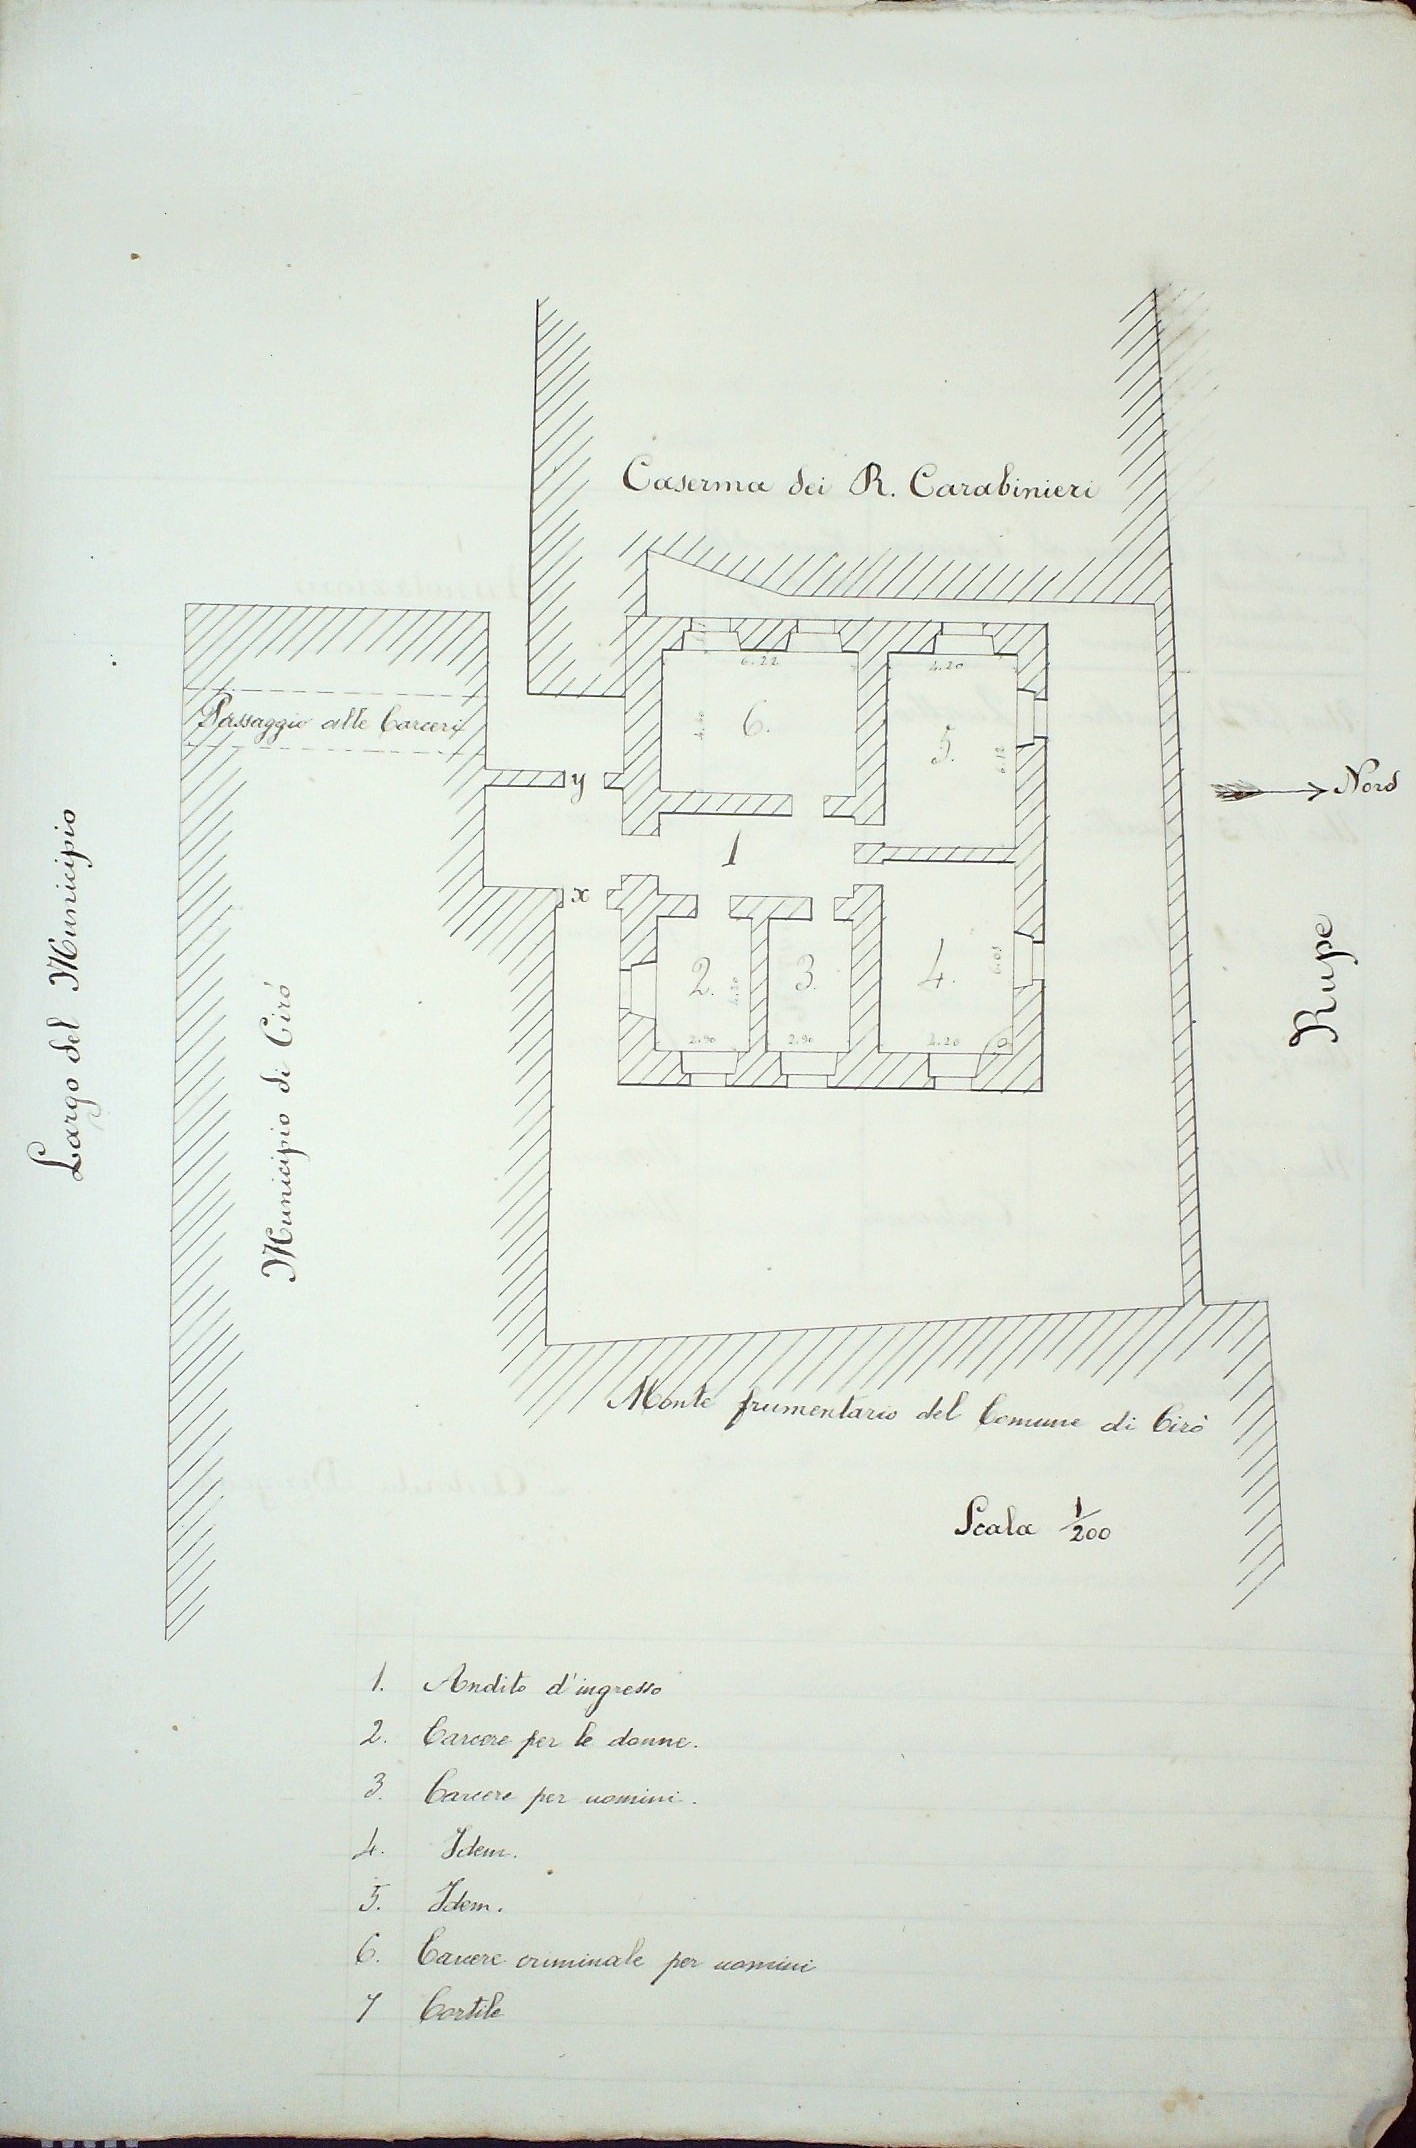 Caserma dei R. Carabinieri
Passaggio alle Carceri
6.22
4.20
6.
5.
6.12
y
Nord
1
x
2.
4.20
3.
4.
6.05
2.90
2.90
4.20
Largo del Municipio
Municipio di Cirò
Rupe
Monte frumentario del Comune di Cirò
Scala 1/200
1. Andito d'ingresso
2. Carcere per le donne.
3. Carcere per uomini.
4. Idem.
5. Idem.
6. Carcere criminale per uomini
7 Cortile